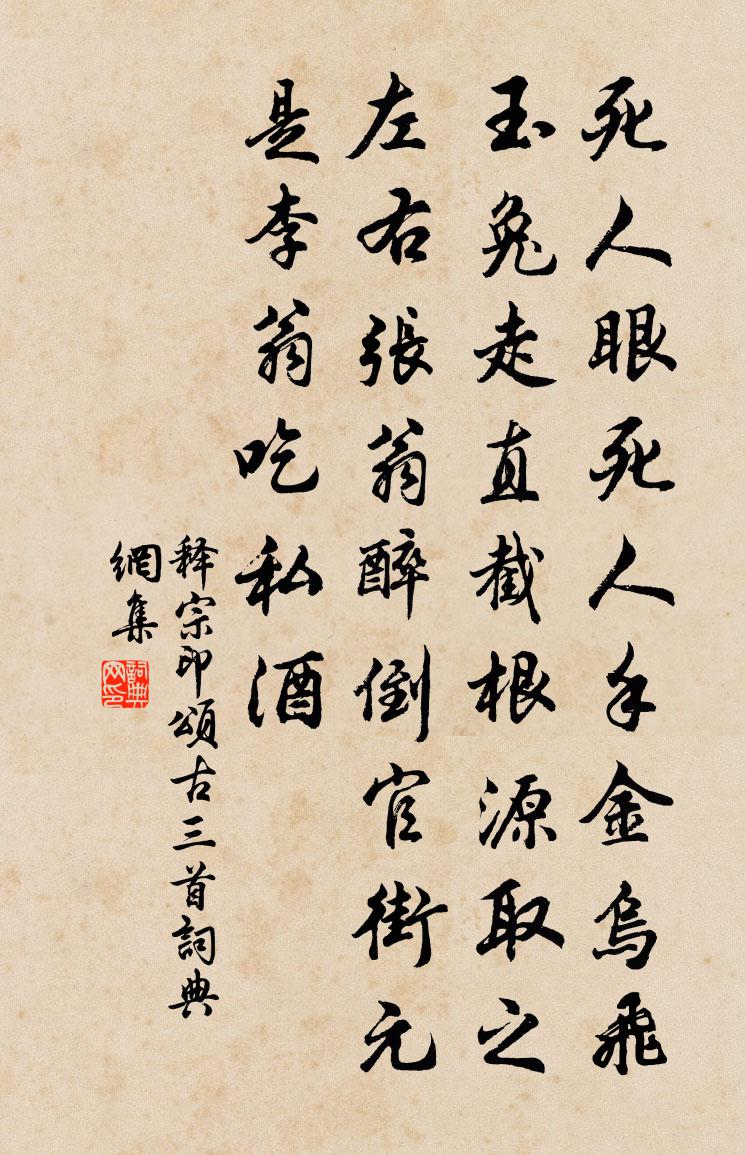 死人眼死人手金烏飛
玉兔走直截根源取之
左右張翁醉倒官街元
是李翁吃私酒
释宗印頌古三首詞典
網集
詞典
网印